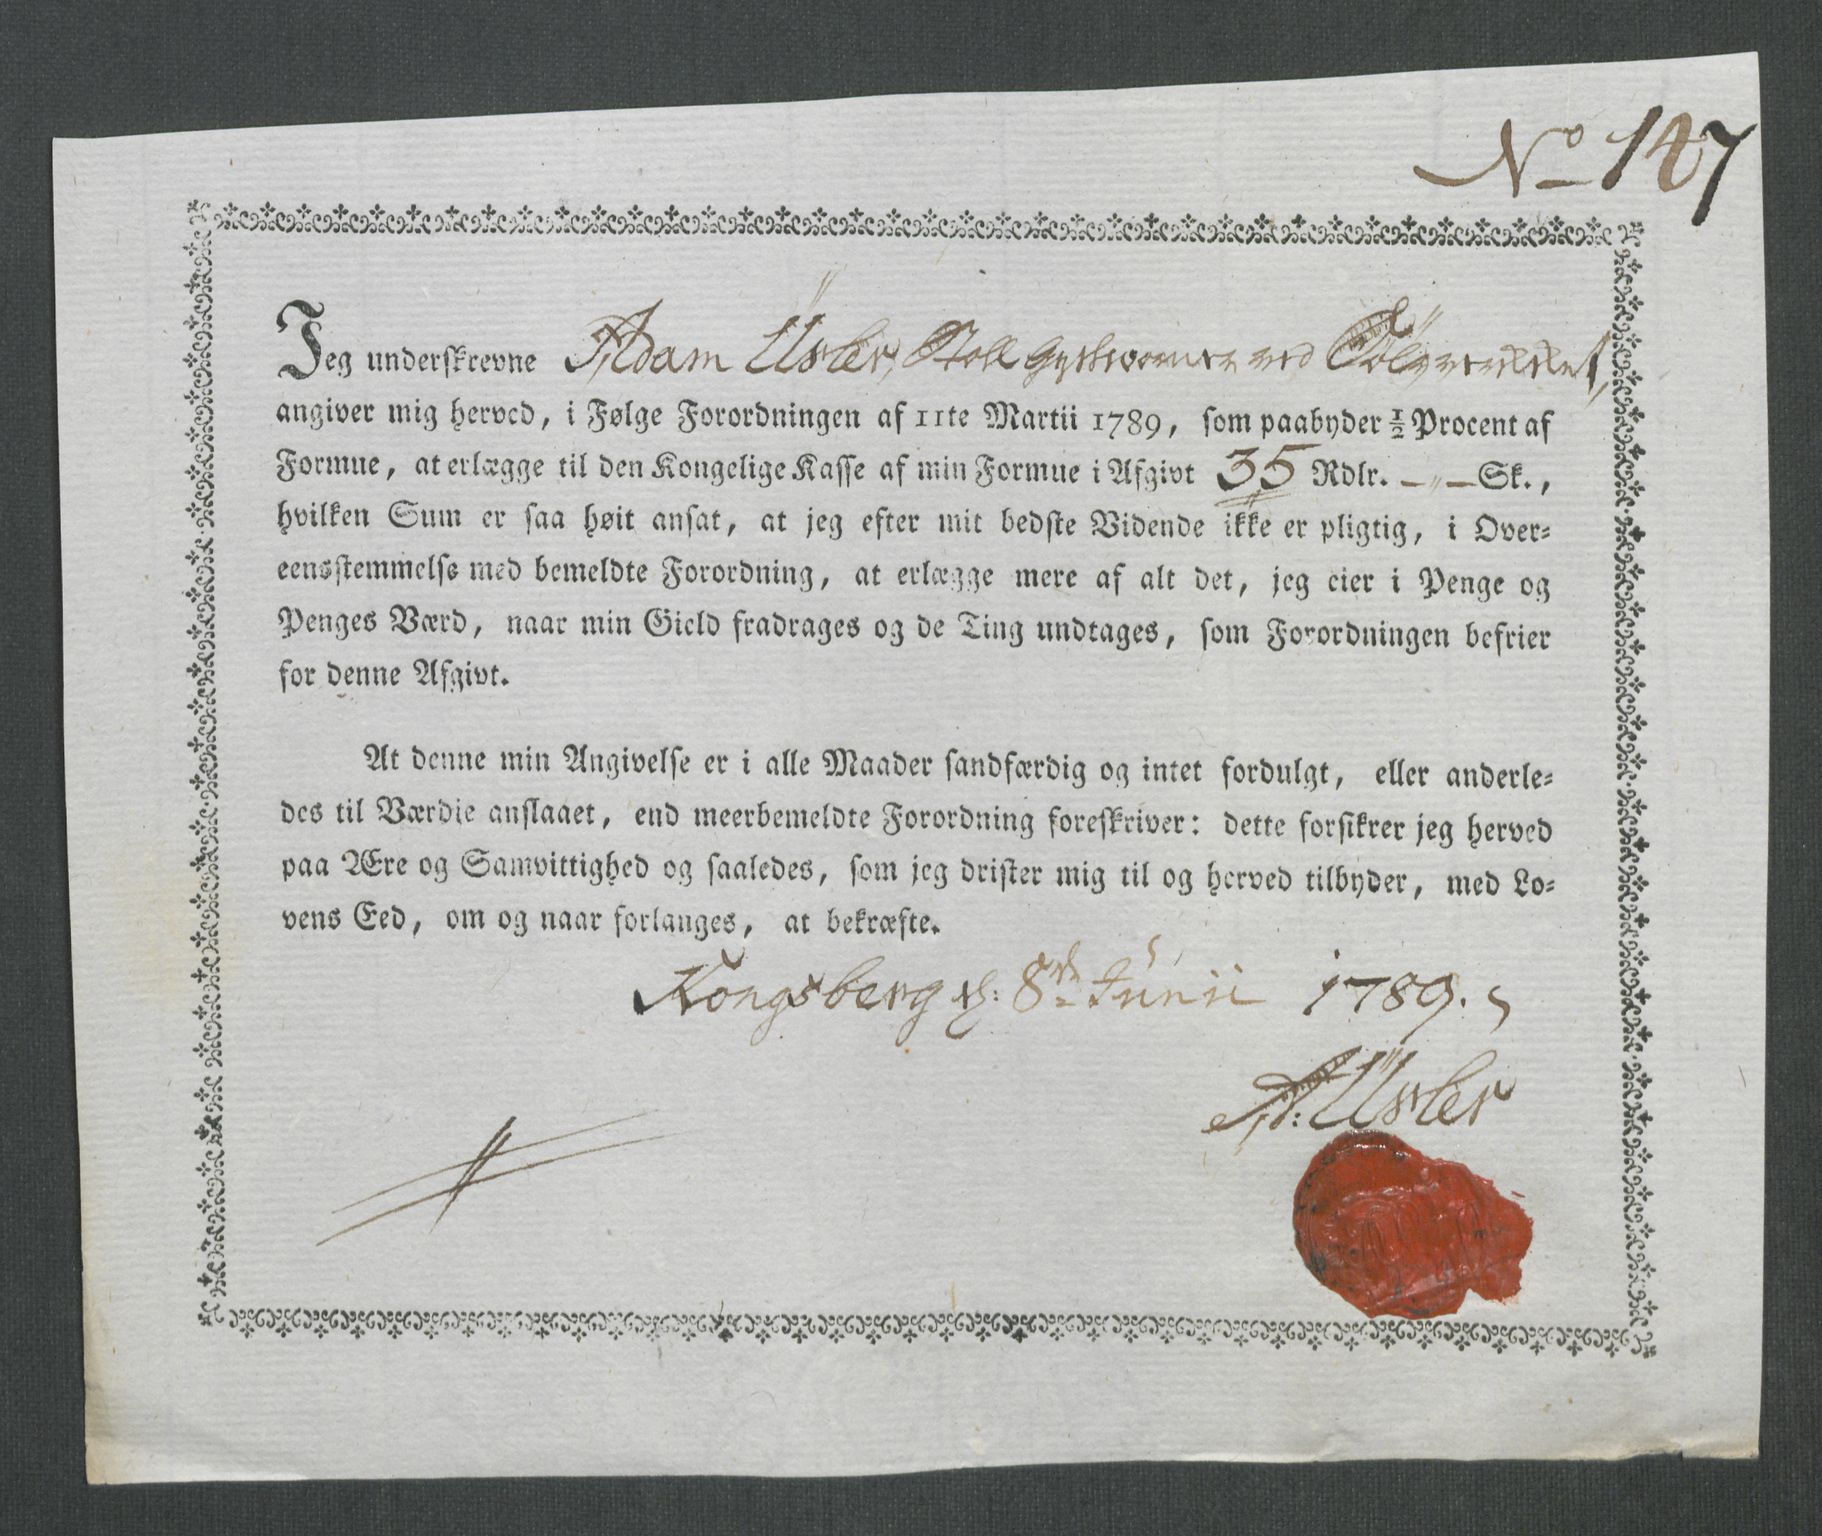 No 147
Jeg underskrevne Adam Üsler, Stoll Geschworner ved Sölvverket,
angiver mig herved, i Følge Forordningen af 11te Martii 1789, som paabyder ½ Procent af
Formue, at erlægge til den Kongelige Kasse af min Formue i Afgivt 35 Rdlr. —„— Sk.,
hvilken Sum er saa høit ansat, at jeg efter mit bedste Vidende ikke er pligtig, i Over=
eensstemmelse med bemeldte Forordning, at erlægge mere af alt det, jeg eier i Penge og
Penges Værd, naar min Gield fradrages og de Ting undtages, som Forordningen befrier
for denne Afgivt.
At denne min Angivelse er i alle Maader sandfærdig og intet fordulgt, eller anderle=
des til Værdie anslaaet, end meerbemeldte Forordning foreskriver: dette forsikrer jeg herved
paa Ære og Samvittighed og saaledes, som jeg drister mig til og herved tilbyder, med Lo=
vens Eed, om og naar forlanges, at bekræfte.
Kongsberg d: 8de Junii 1789.
A: Üsler